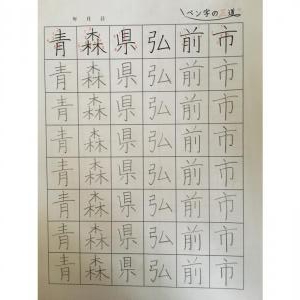 年 月 日
ペン字の王道
青森県弘前市
青森県弘前市
青森県弘前市
青森県弘前市
青森県弘前市
青森県弘前市
青森県弘前市
青森県弘前市